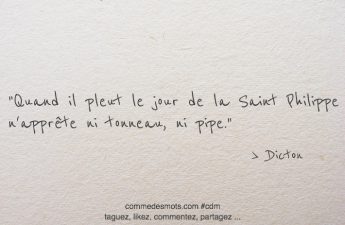 "Quand il pleut le jour de la Saint Philippe
n'apprête ni tonneau, ni pipe."
> Dicton
commedesmots.com #cdm
taguez, likez, commentez, partagez ...